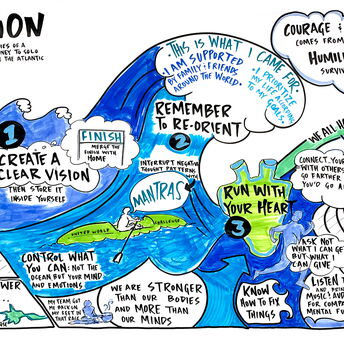 ION
IES OF A
NEY TO SOLO
THE ATLANTIC
THIS IS WHAT I CAME FOR
• I AM SUPPORTED
BY FAMILY & FRIENDS
AROUND THE WORLD
• I PRIORITIZE
MY LIFE
TO MY GOALS
COURAGE
COMES FROM
HUMILI
SURVIV
1
CREATE A
CLEAR VISION
THEN STORE IT
INSIDE YOURSELF
FINISH
MERGE THE
FINISH WITH
HOME
REMEMBER
TO RE-ORIENT
2
INTERRUPT NEGATIVE
THOUGHT PATTERNS
WITH
MANTRAS
UNITED WORLD
CHALLENGE
RUN WITH
YOUR HEART
3
WE ALL H
CONNECT YOUR
WITH OTHERS
GO FARTHER
YOU'D GO A
ASK NOT
WHAT I CAN GE
BUT WHAT I
CAN GIVE
CONTROL WHAT
YOU CAN: NOT THE
OCEAN BUT YOUR MIND
AND EMOTIONS
OWER
MY TEAM GOT
ME BACK ON
MY FEET IN
THAT RACE
WE ARE STRONGER
THAN OUR BODIES
AND MORE THAN
OUR MINDS
KNOW
HOW TO FIX
THINGS
LISTEN T
MUSIC!
FOR COMP
MENTAL FU